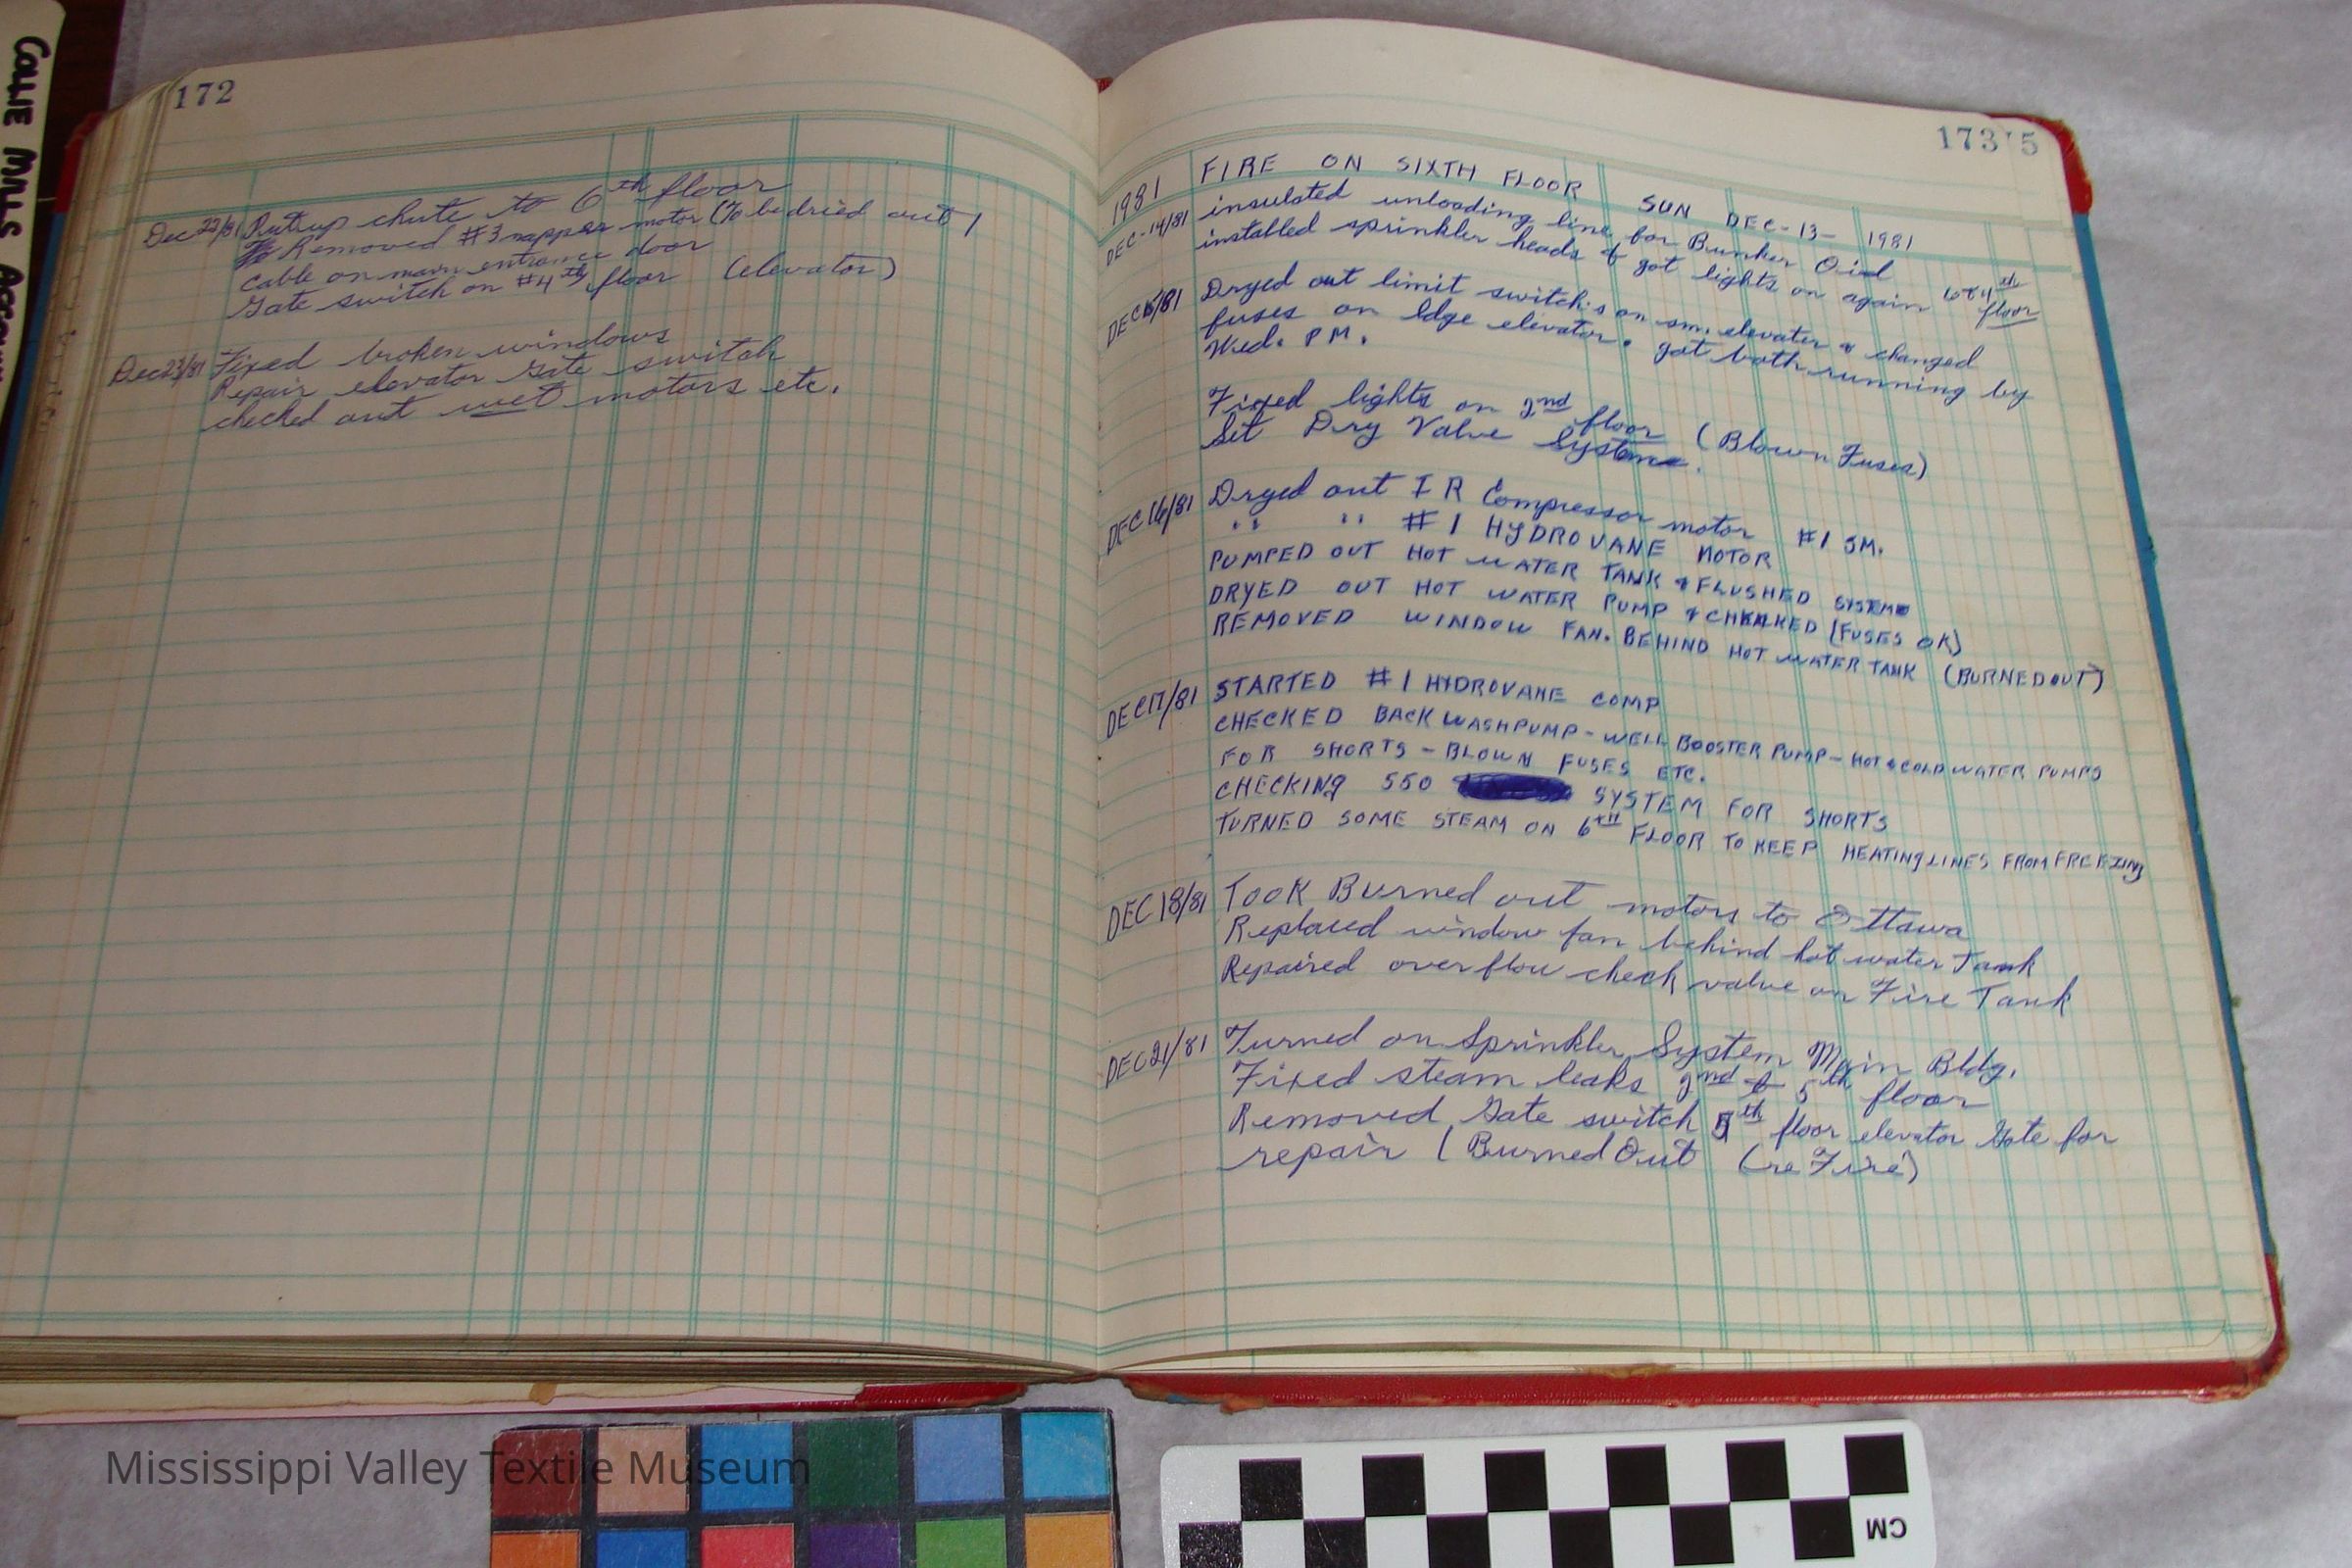 COLLIE MILLS
172
Dec 22/81 Put up chute to 6th floor
Removed #3 napper motor (To be dried out)
Cable on main entrance door
Gate switch on #4th floor (elevator)
Dec 23/81 Fixed broken windows
Repair elevator gate switch
checked out wet motors etc.
173
5
1981 FIRE ON SIXTH FLOOR SUN DEC-13- 1981
DEC-14/81 insulated unloading line for Bunker Oil
installed sprinkler heads & got lights on again 6&4th floor
DEC 15/81 Dryed out limit switch's on sm. elevator & changed
fuses on ldge elevator. got both running by
Wed. P.M.
Fixed lights on 2nd floor (Blown Fuses)
Set Dry Valve System.
DEC 16/81 Dryed out I R Compressor motor #1 SM.
" " #1 HYDROVANE MOTOR
PUMPED OUT HOT WATER TANK & FLUSHED SYSTEM
DRYED OUT HOT WATER PUMP & CHECKED (FUSES OK)
REMOVED WINDOW FAN. BEHIND HOT WATER TANK (BURNED OUT)
DEC 17/81 STARTED #1 HYDROVANE COMP
CHECKED BACK WASHPUMP - WELL BOOSTER PUMP - HOT & COLD WATER PUMPS
FOR SHORTS - BLOWN FUSES ETC.
CHECKING 550 SYSTEM FOR SHORTS
TURNED SOME STEAM ON 6TH FLOOR TO KEEP HEATING LINES FROM FREEZING
DEC 18/81 Took Burned out motors to Ottawa
Replaced window fan behind hot water Tank
Repaired overflow check valve on Fire Tank
DEC 21/81 Turned on Sprinkler System Main Bldg.
Fixed steam leaks 2nd & 5th floor
Removed Gate switch 5th floor elevator Gate for
repair (Burned Out (re Fire)
Mississippi Valley Textile Museum
CM